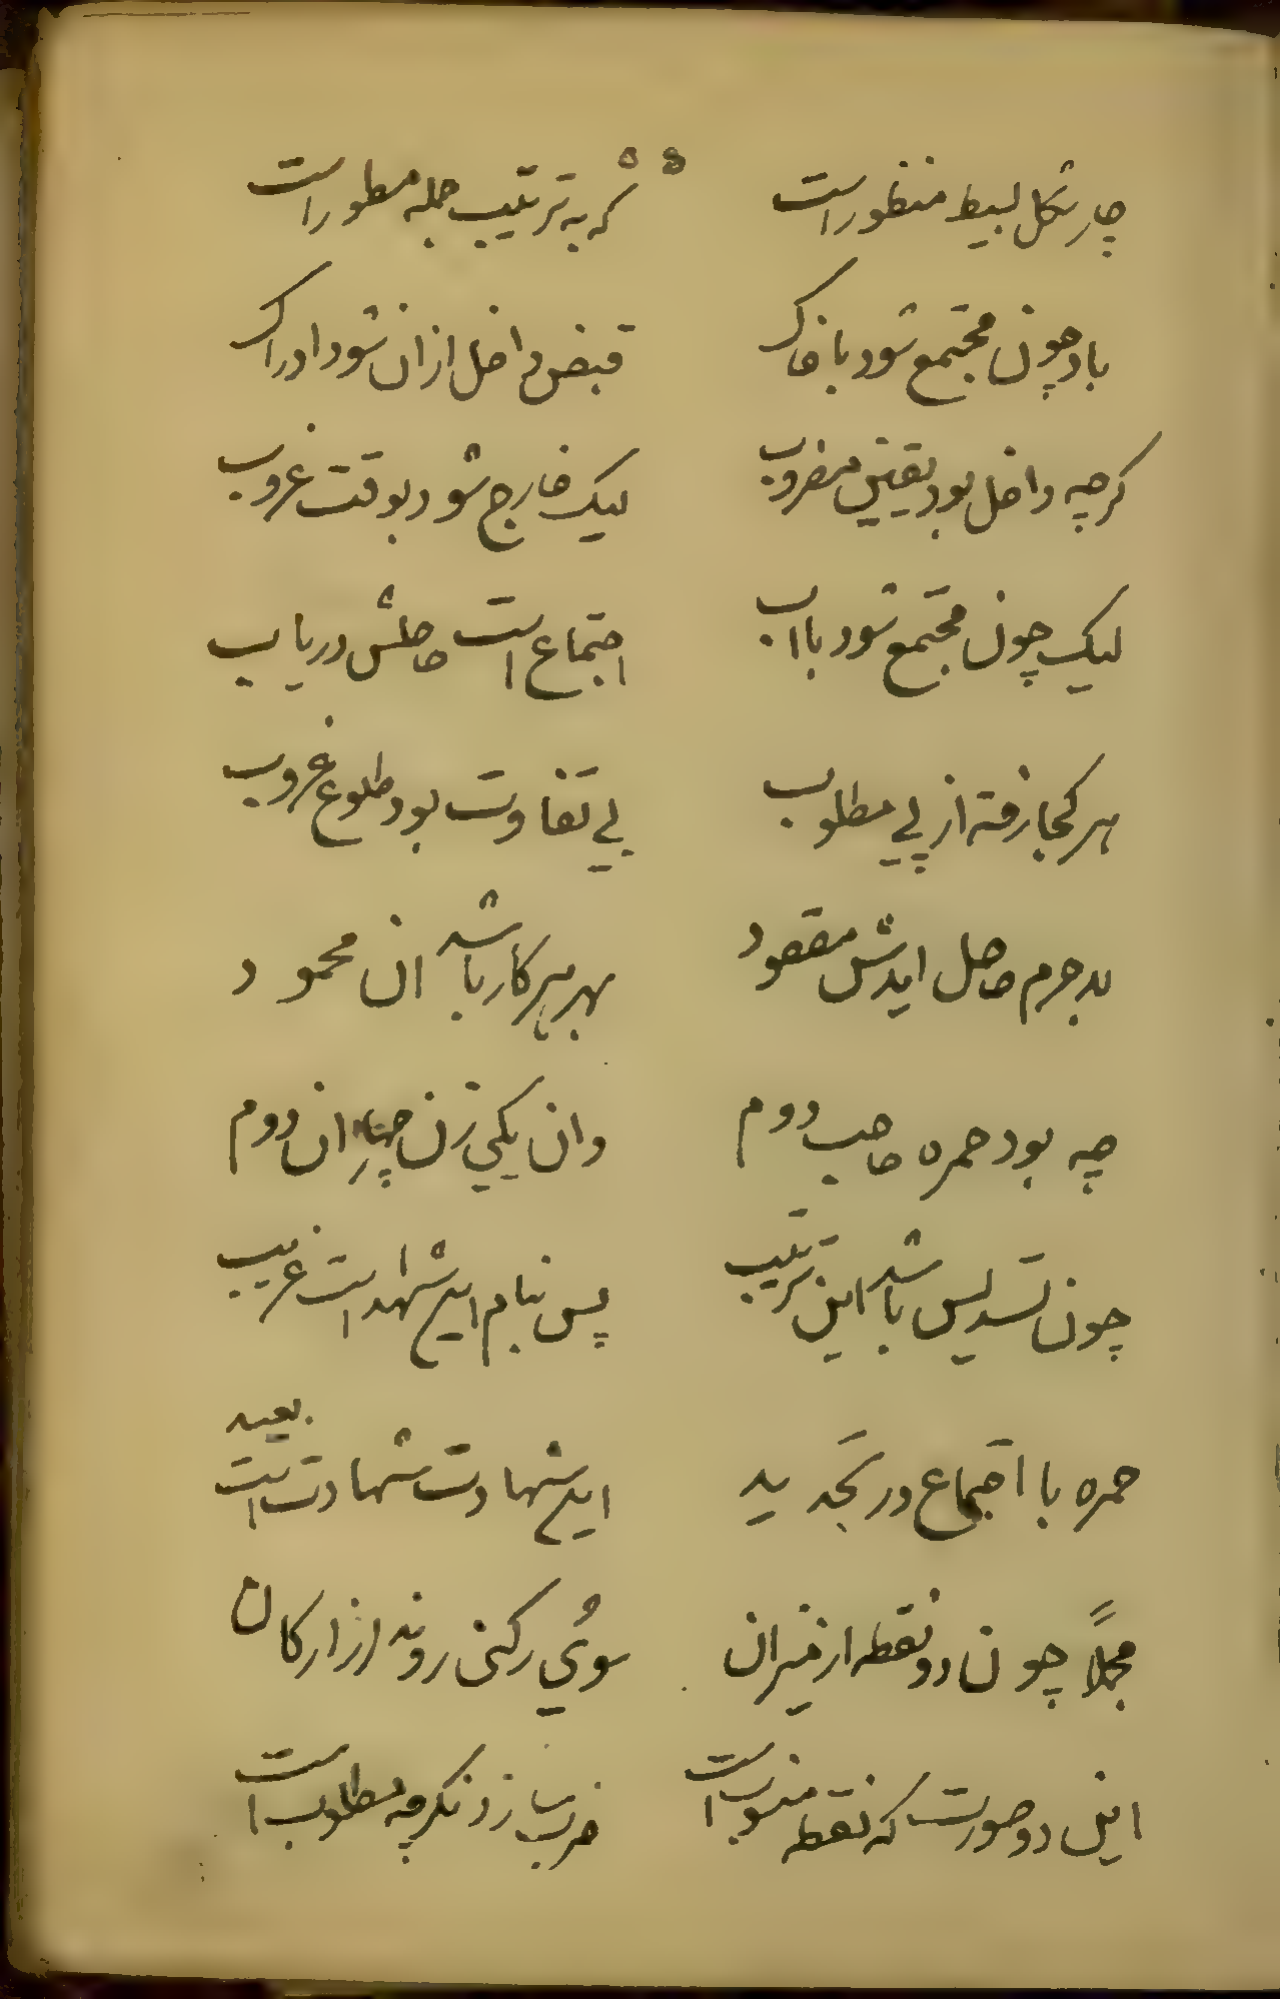 چار شکل بسیط منظور است
که به ترتیب جمله مسطور است
باد چون مجتمع شود با خاک
قبض داخل ازان شود ادراک
کرچه داخل بود یقین مضروب
لیک خارج شود بوقت غروب
لیک چون مجتمع شود بااب
اجتماع است حاصلش دریاب
هر کجا رفته از پی مطلوب
بی تفاوت بود طلوع غروب
لاجرم حاصل ایدش مقصود
بهر هر کار باشد ان محمود
چه بود حمره صاحب دوم
وان یکی زن چهار ان دوم
چون تسدیس باشد این ترتیب
پس نیابم این شهدا است غریب
حمره با اجتماع در تجدید
این شهادت شهادت است بعید
مجملاً چون دو نقطه از میزان
سوی رکنی روند از ارکان
این دو صورت که نقطه منسوب است
ضرب سازد نکر چه مطلوب است